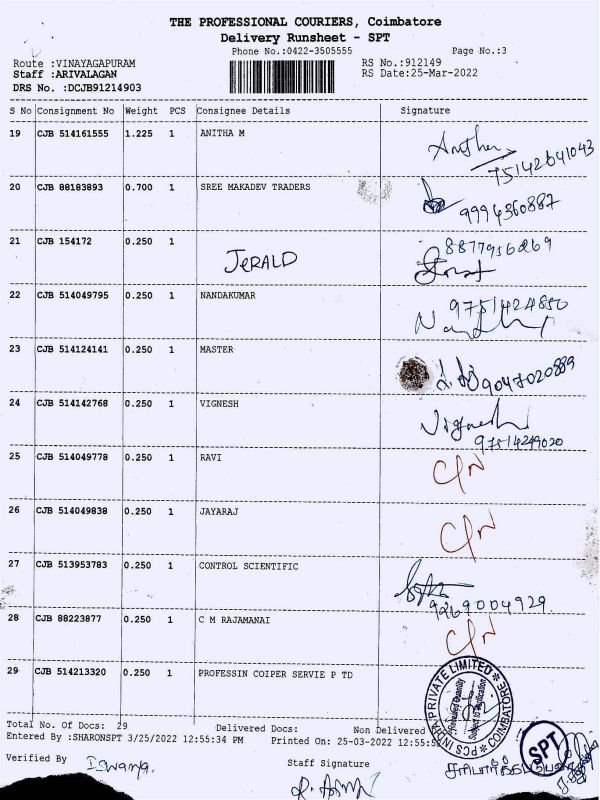 THE PROFESSIONAL COURIERS, Coimbatore
Delivery Runsheet - SPT
Phone No.:0422-3505555 Page No.:3
Route :VINAYAGAPURAM RS No.:912149
Staff :ARIVALAGAN RS Date:25-Mar-2022
DRS No. :DCJB91214903
S No Consignment No Weight PCS Consignee Details Signature
19 CJB 514161555 1.225 1 ANITHA M
75142641043
20 CJB 88183893 0.700 1 SREE MAKADEV TRADERS
9994360887
21 CJB 154172 0.250 1 JERALD
22 CJB 514049795 0.250 1 NANDAKUMAR
9751424850
23 CJB 514124141 0.250 1 MASTER
9047020889
24 CJB 514142768 0.250 1 VIGNESH
Vignesh
97514249020
25 CJB 514049778 0.250 1 RAVI C/N
26 CJB 514049838 0.250 1 JAYARAJ C/N
27 CJB 513953783 0.250 1 CONTROL SCIENTIFIC
9269004929
28 CJB 88223877 0.250 1 C M RAJAMANAI C/N
29 CJB 514213320 0.250 1 PROFESSIN COIPER SERVIE P TD
PCS INDIA PRIVATE LIMITED * COIMBATORE *
Total No. Of Docs: 29 Delivered Docs: Non Delivered
Entered By :SHARONSPT 3/25/2022 12:55:34 PM Printed On: 25-03-2022 12:55:5
SPT
Verified By Staff Signature